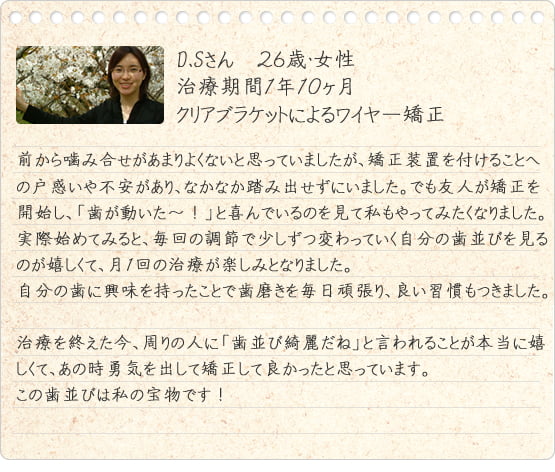 D.Sさん　26歳・女性
治療期間1年10ヶ月
クリアブラケットによるワイヤー矯正
前から噛み合せがあまりよくないと思っていましたが、矯正装置を付けることへ
の戸惑いや不安があり、なかなか踏み出せずにいました。でも友人が矯正を
開始し、「歯が動いた～！」と喜んでいるのを見て私もやってみたくなりました。
実際始めてみると、毎回の調節で少しずつ変わっていく自分の歯並びを見る
のが嬉しくて、月1回の治療が楽しみとなりました。
自分の歯に興味を持ったことで歯磨きを毎日頑張り、良い習慣もつきました。
治療を終えた今、周りの人に「歯並び綺麗だね」と言われることが本当に嬉
しくて、あの時勇気を出して矯正して良かったと思っています。
この歯並びは私の宝物です！